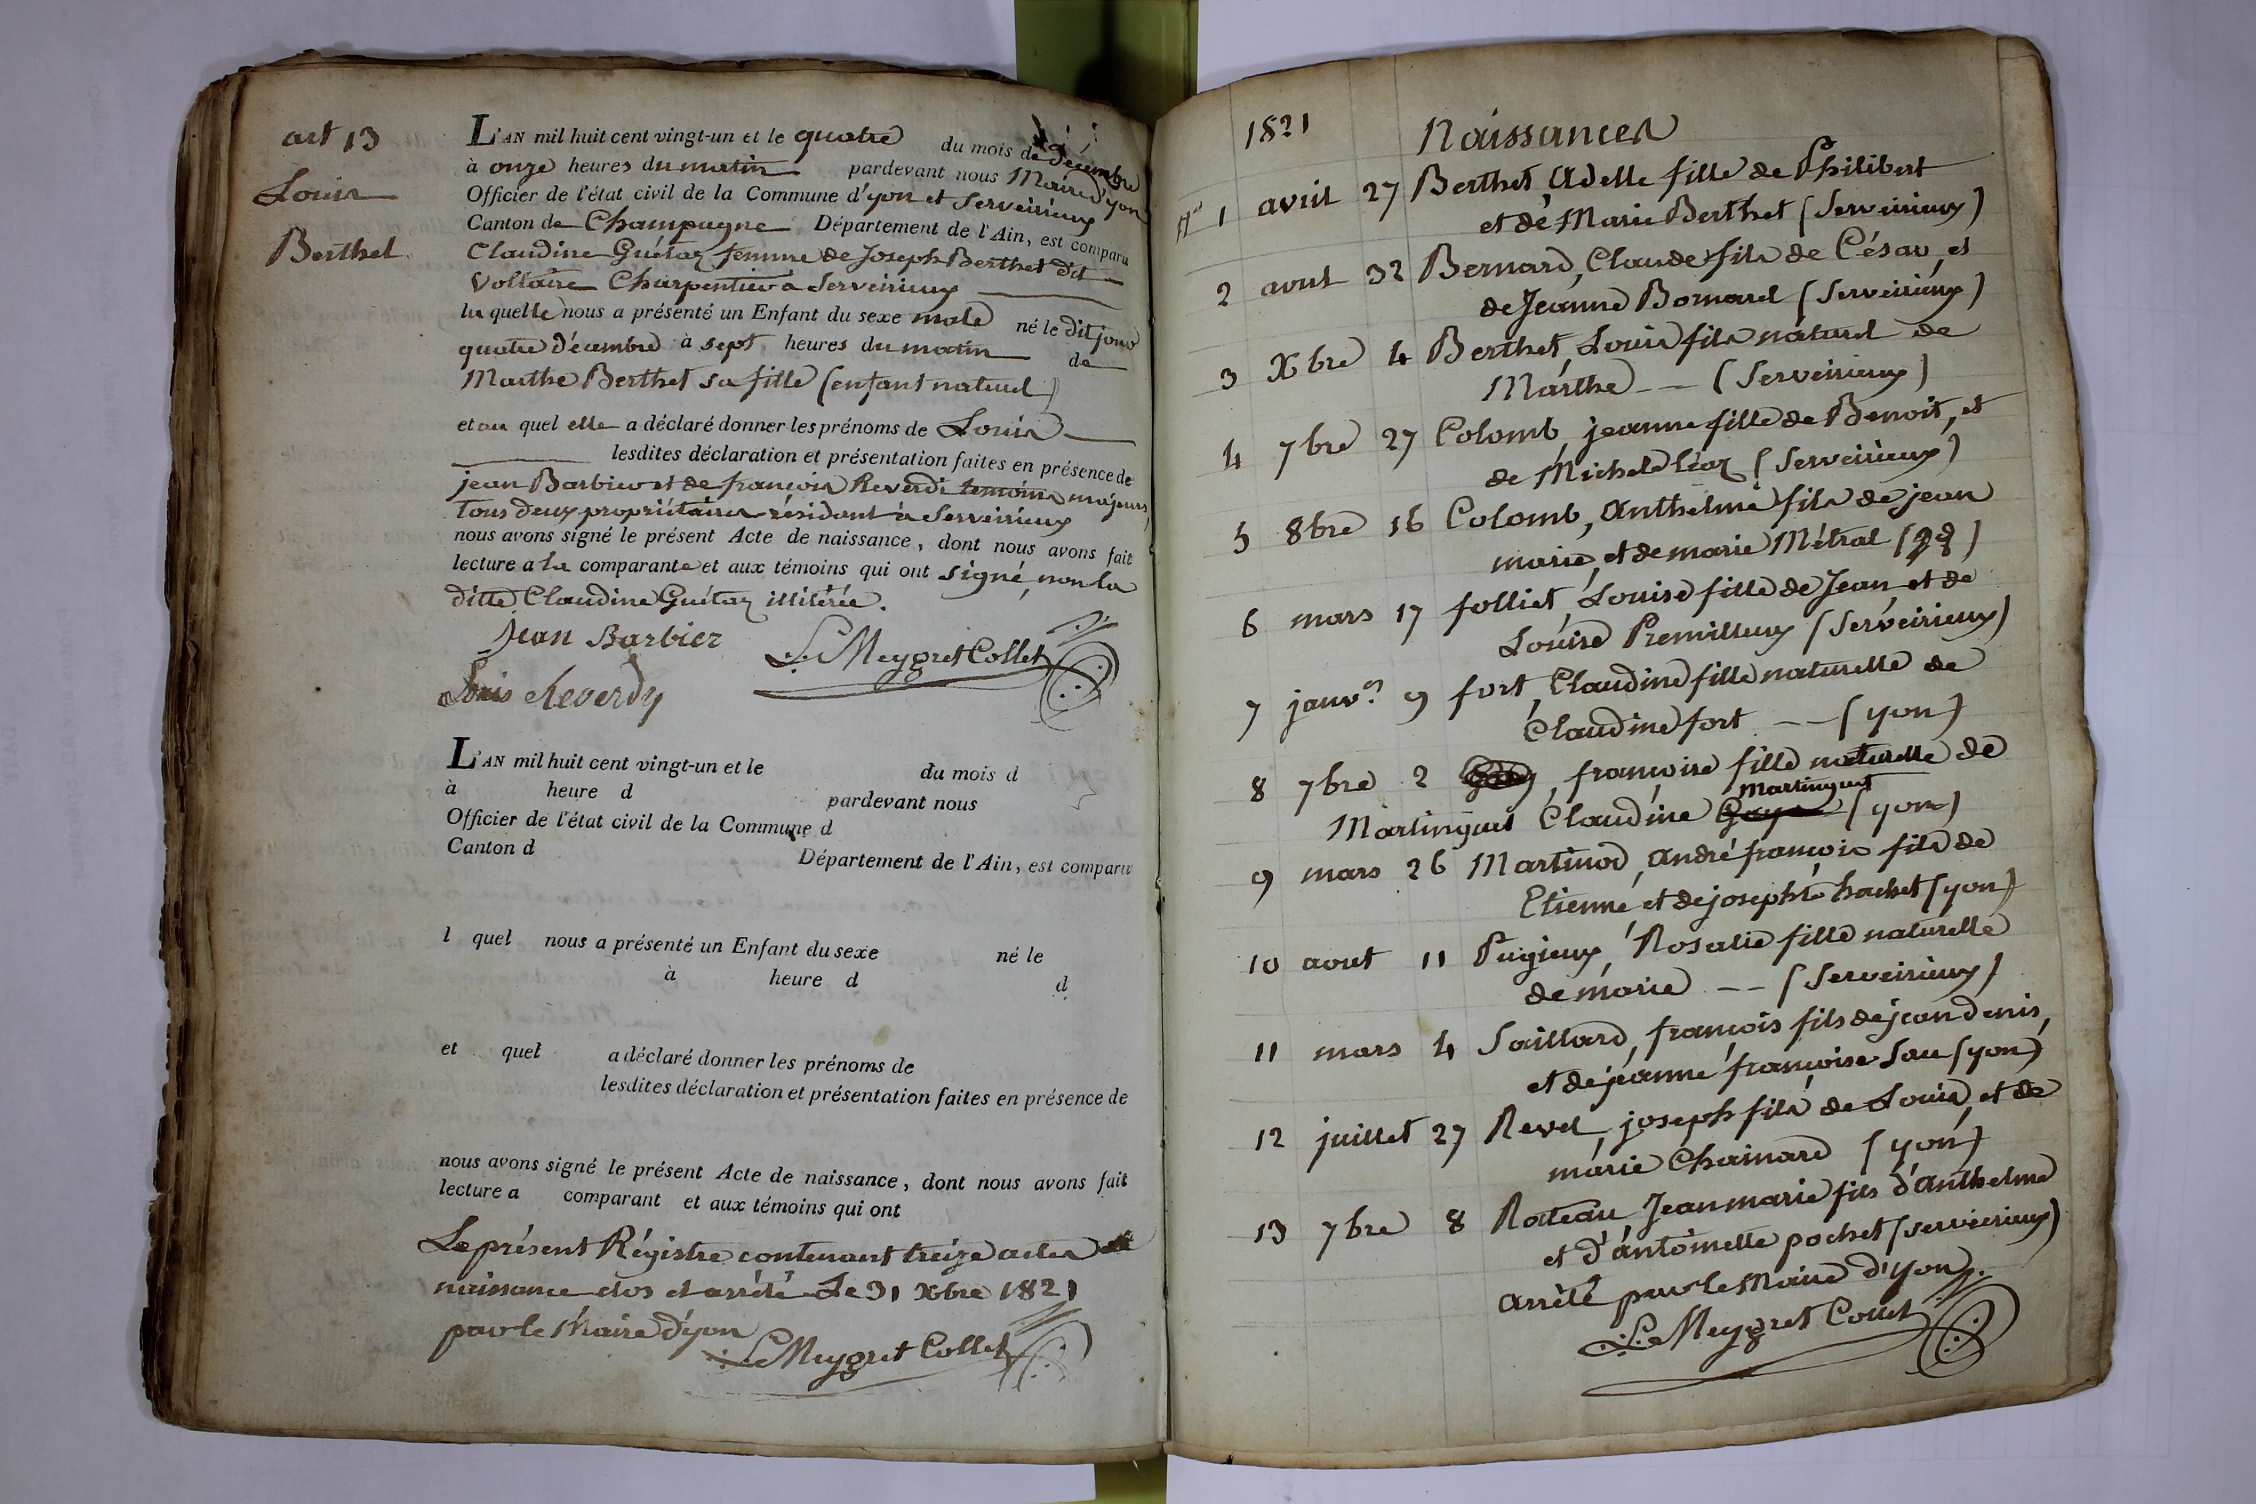 art 13
Louis
Berthet
L'AN mil huit cent vingt-un et le quatre du mois de Décembre
à onze heures du matin pardevant nous Maire d'yon
Officier de l'état civil de la Commune d'yon et Serveirieux
Canton de Champagne Département de l'Ain, est comparu
Claudine Guétaz femme de Joseph Berthet dit
Voltaire Charpentier à Serveirieux
la quelle nous a présenté un Enfant du sexe male né le dit jour
quatre décembre à sept heures du matin de
Marthe Berthet sa fille (enfant naturel)
et au quel elle a déclaré donner les prénoms de Louis
lesdites déclaration et présentation faites en présence de
jean Barbier et de françois Reverdi temoins majeurs
tous deux propriétaires résidant à Serveirieux
nous avons signé le présent Acte de naissance, dont nous avons fait
lecture a la comparante et aux témoins qui ont signé, non la
ditte Claudine Guétaz illitérée.
Jean Barbier LeMeygret Collet
Louis Reverdy
L'AN mil huit cent vingt-un et le du mois d
à heure d pardevant nous
Officier de l'état civil de la Commune d
Canton d Département de l'Ain, est comparu
l quel nous a présenté un Enfant du sexe né le
à heure d d
et quel a déclaré donner les prénoms de
lesdites déclaration et présentation faites en présence de
nous avons signé le présent Acte de naissance, dont nous avons fait
lecture a comparant et aux témoins qui ont
Le présent Régistre contenant treize actes de
naissance clos et arrété Le 31 Xbre 1821
par le Maire d'yon
LeMeygret Collet
1821 Naissances
1 avril 27 Berthet, Adelle fille de Philibert
et de Marie Berthet (Serveirieux)
2 aout 32 Bernard, Claude fils de César, et
de Jeanne Bornarel (Serveirieux)
3 Xbre 4 Berthet, Louis fils naturel de
Marthe -- (Serveirieux)
4 7bre 27 Colomb, jeanne fille de Benoit, et
de Michele Liaz (Serveirieux)
5 8bre 16 Colomb, Anthelme fils de jean
marie, et de marie Métral
6 mars 17 folliet, Louise fille de Jean, et de
Louise Premilleux (Serveirieux)
7 janvr 9 fort, Claudine fille naturelle de
Claudine fort -- (yon)
8 7bre 2 , françoise fille naturelle de
Martinguet
Martinguet Claudine Gaye (yon)
9 mars 26 Martinod, André françois fils de
Etienne et de josephte hachet (yon)
10 aout 11 Pugieux, Rosalie fille naturelle
de marie -- (Serveirieux)
11 mars 4 Saillard, françois fils de jean denis,
et de jeanne françoise Sau (yon)
12 juillet 27 Revel, joseph fils de Louis, et de
marie Chainard (yon)
13 7bre 8 Rateau Jean marie fils d'anthelme
et d'antoinette pochet (serveirieux)
arrêté par le Maire d'yon
LeMeygret Collet